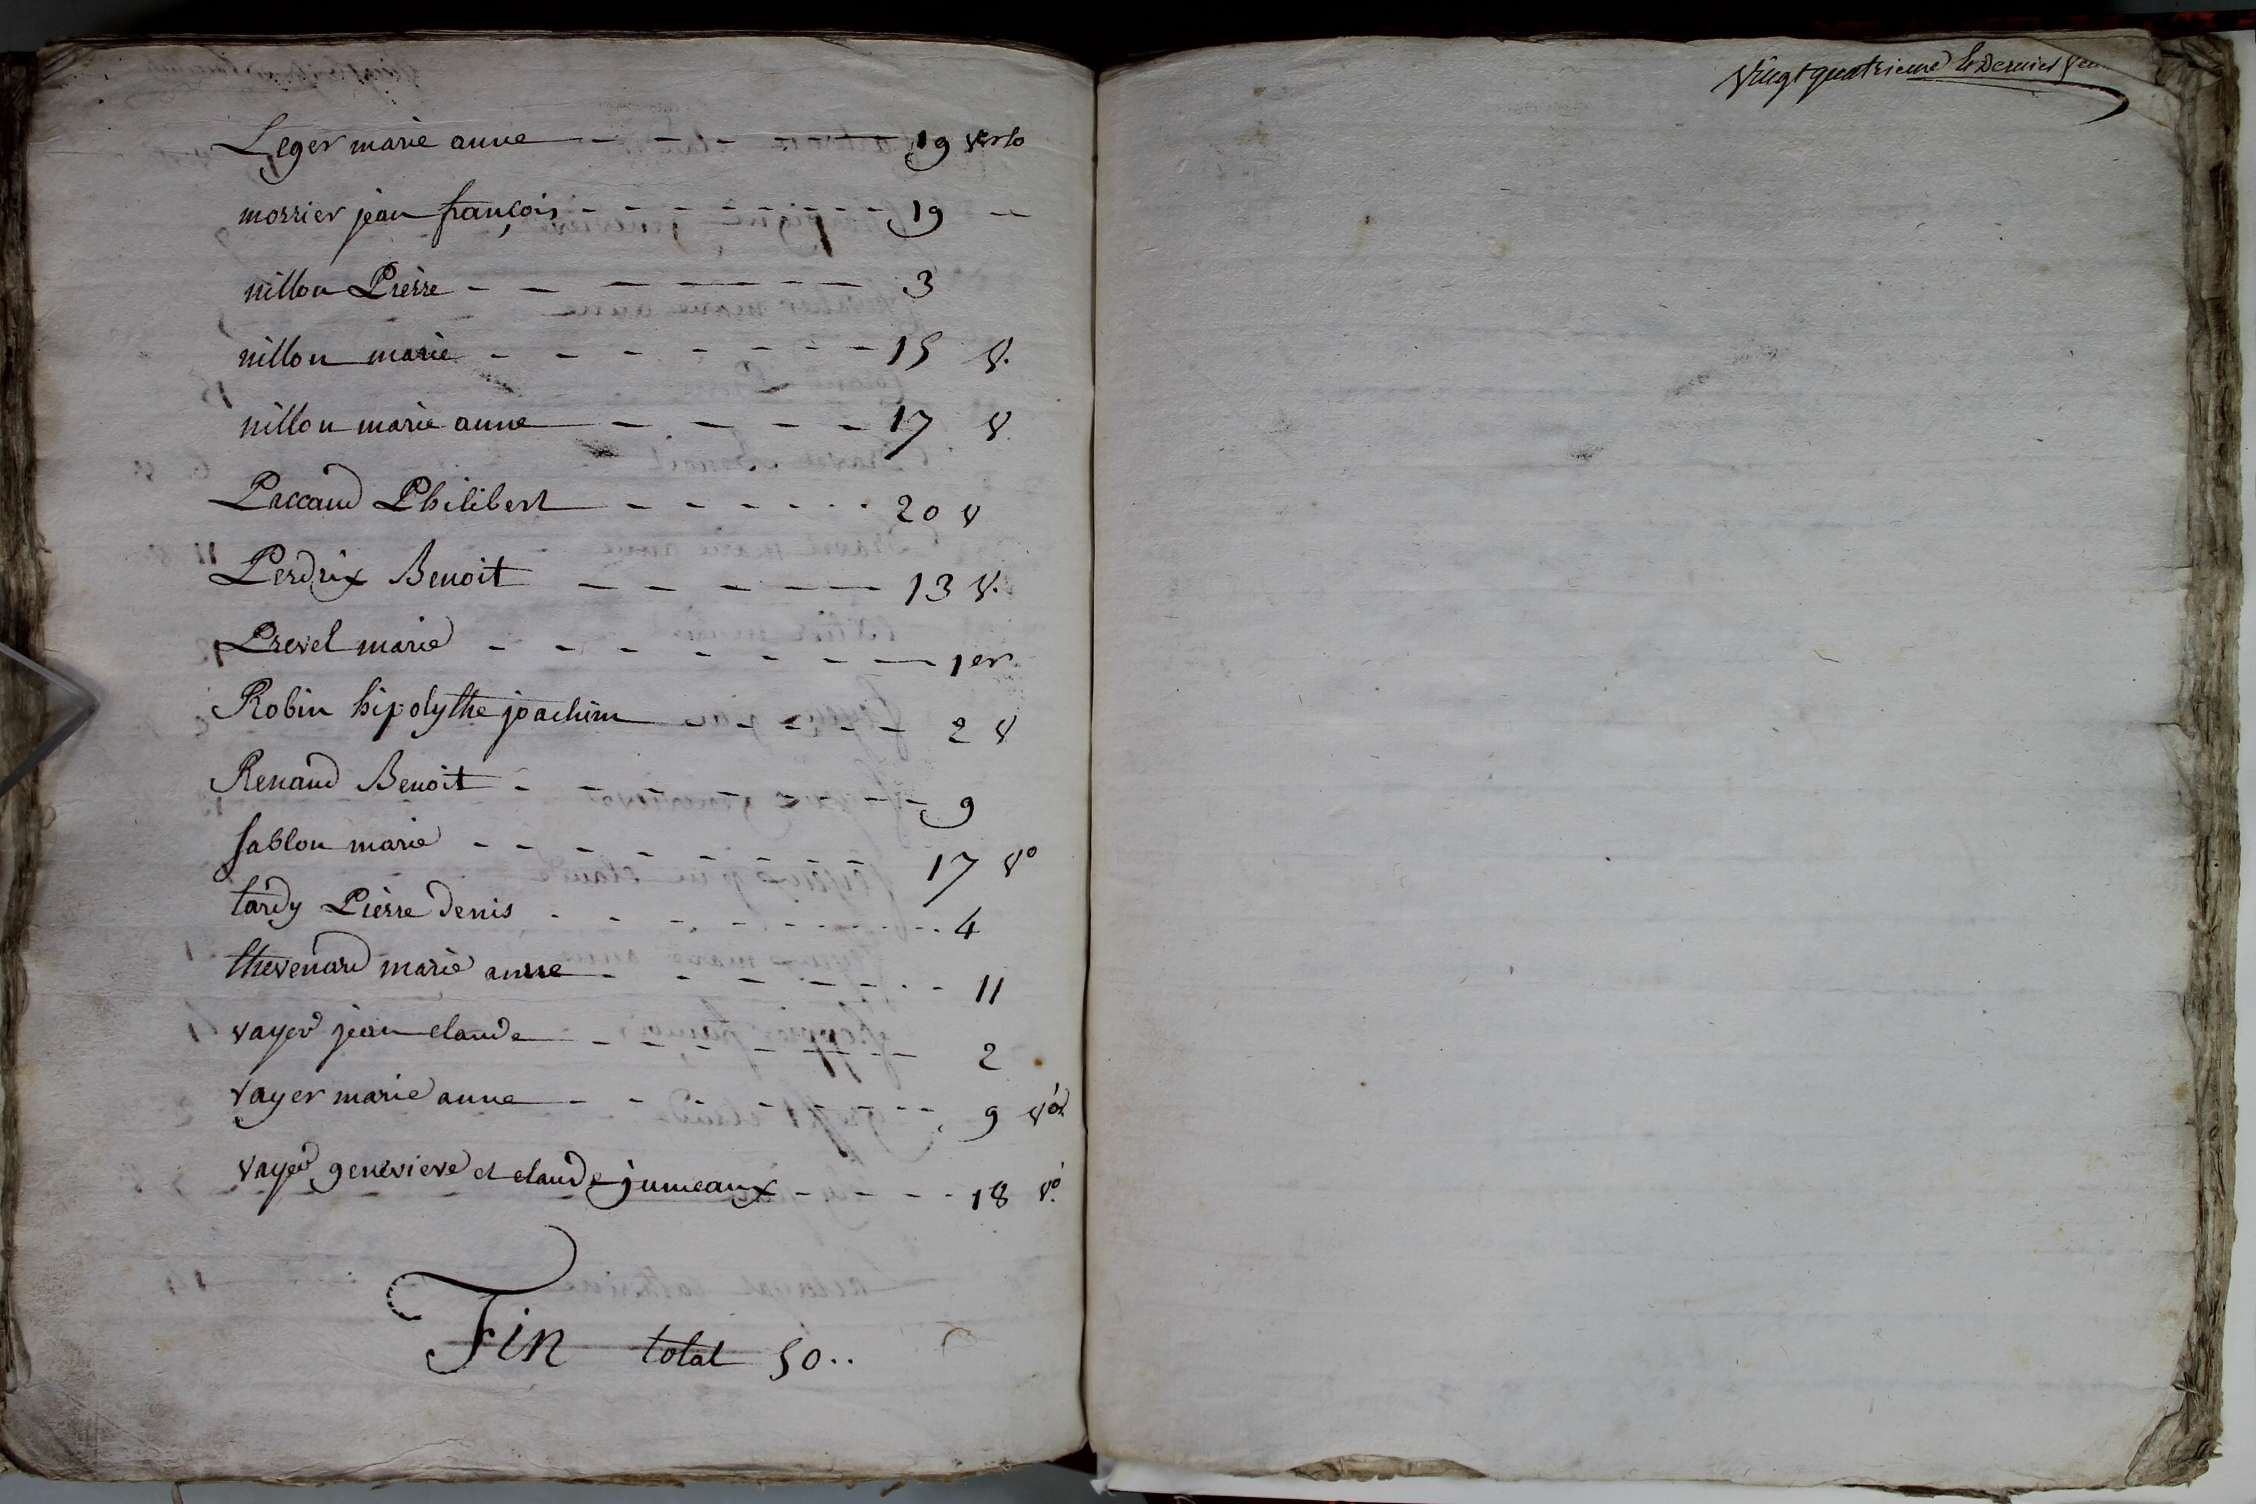 Leger marie anne - - - - 19 verso
morrier jean françois - - - - - - - - - 19 --
nillon Pierre - - - - - - - - 3
nillon marie - - - - - - - 15 V.
nillon marie anne - - - - 17 V
Paccaud Philibert - - - - - - 20 V
Perdrix Benoit - - - - - 13 V.
Prevel marie - - - - - - - 1er
Robin hipolythe joachim - - - - - 2 V
Renaud Benoit - - - - - - - - 9
Sablon marie - - - - - - - - - 17 Vo
tardy Pierre denis - - - - - - - - - 4
thevenard marie anne - - - - - - - 11
vayer jean claude - - - - - - - - 2
vayer marie anne - - - - - - - - 9 Vo
vayer genevieve et claude jumeaux - - - - 18 Vo.
Fin total 50..
Vingt quatrieme & Dernier